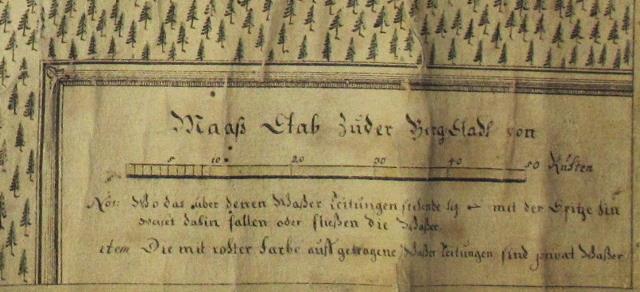 Maaß Stab zu der Berg Stadt von
5 10 20 30 40 50 Ruthen
Not: Wo das über denen Waßer Leitungen stehende mit der Spitze hin
weiset dahin fallen oder fließen die Waßer.
item Die mit rother Farbe auff getragene Waßer Leitungen sind privat Waßer